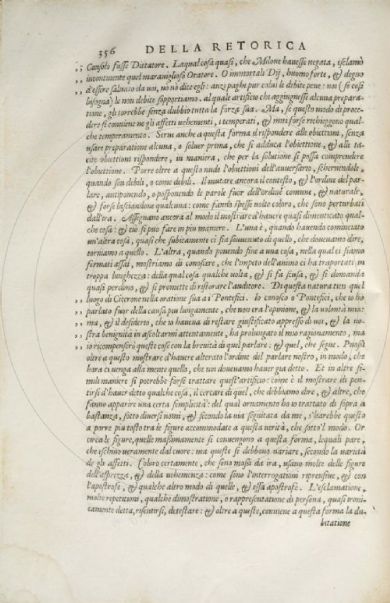 356 DELLA RETORICA
,, Consolo fusse Dittatore. La qual cosa quasi, che Milone hauesse negata, esclamò
incontinente quel marauiglioso Oratore. O immortali Dij, huomo forte, & degno
d'essere saluato da voi, nò nò dite egli: anzi paghi pur colui le debite pene: noi (se così
bisogna) le non debite sopportiamo. al quale artificio che aggiugnesse alcuna prepara-
tione, gli torrebbe senza dubbio tutta la forza sua. Ma, se questo modo di proce-
dere si conuiene ne gli affetti uehementi, i temperati, & miti forse richieggono qual-
che temperamento. Serui anche a questa forma il rispondere alle obiettioni, senza
usare preparatione alcuna, o soluer prima, che si adduca l'obiettione, & alle ta-
cite obiettioni rispondere, in maniera, che per la solutione si possa comprendere
l'obiettione. Porre oltre a questo nude l'obiettioni dell'auuersario, schernendole,
quando sen debili, o come debili. Il mutare ancora il contesto, & l'ordine del par-
lare, anteponendo, o posponendo le parole fuor dell'ordine comune, & naturale,
& forse lasciandone qualcuna: come fanno spesse volte coloro, che sono perturbati
dall'ira. Assegnano ancora al modo il mostrare d'hauere quasi dimenticato qual-
che cosa: & ciò si può fare in più maniere. L'una è, quando hauendo cominciato
un'altra cosa, quasi che subitamente ci sia souuenuto di quello, che doueuamo dire,
torniamo a quello. L'altra, quando ponendo fine a una cosa, nella qual ci siamo
fermati assai, mostriamo di conoscere, che l'impeto dell'animo ci ha trasportati in
troppa lunghezza: della qual cosa qualche volta, & si fa scusa, & si domanda
quasi perdono, & si promette di ristorare l'auditore. Di questa natura è in quel
luogo di Cicerone nella oratione sua ai Pontefici. Io conosco o Pontefici, che io ho
,, parlato fuor della causa più lungamente, che non era l'opinione, & la volontà mia:
,, ma, & il desiderio, che io haueua di restare giustificato appresso di voi, & la uo-
,, stra benignità in ascoltarmi attentamente, ha prolungato il mio ragionamento, ma
,, io ricompenserò questa cosi con la breuità di quel parlare: & quel, che segue. Possi
oltre a questo mostrare d'hauere alterato l'ordine del parlare nostro, in modo, che
hora ci uenga alla mente quello, che noi doueuamo hauer già detto. Et in altre si-
mili maniere si potrebbe forse trattare quest'artificio: come è il mostrare di pen-
tirsi d'hauer detto qualche cosa, il cercare di quel, che debbiamo dire, & altre, che
fanno apparire una certa simplicità: del qual ornamento ho io trattato di sopra a
bastanza, sotto diuersi nomi, & secondo la uia seguitata da me, s'harebbe questo
a porre più tosto tra le figure accommodate a questa uerità, che sotto'l modo. Or
circa le figure, quelle massimamente si conuengono a questa forma, le quali pare,
che eschino ueramente dal cuore: ma queste si debbono uariare, secondo la uarietà
de gli affetti. Coloro certamente, che sono mossi da ira, usano molte delle figure
dell'asprezza, & della uehemenza: come sono l'interrogationi riprensiue, & con
l'apostrofe, & qualche altro modo di quelle, & essa apostrofe. L'esclamatione,
molte repetitioni, qualche dimostratione, o rapresentatione di persona, quasi ironi-
camente detta, risentirsi, detestare: & oltre a questo, conuiene a questa forma la du-
bitatione